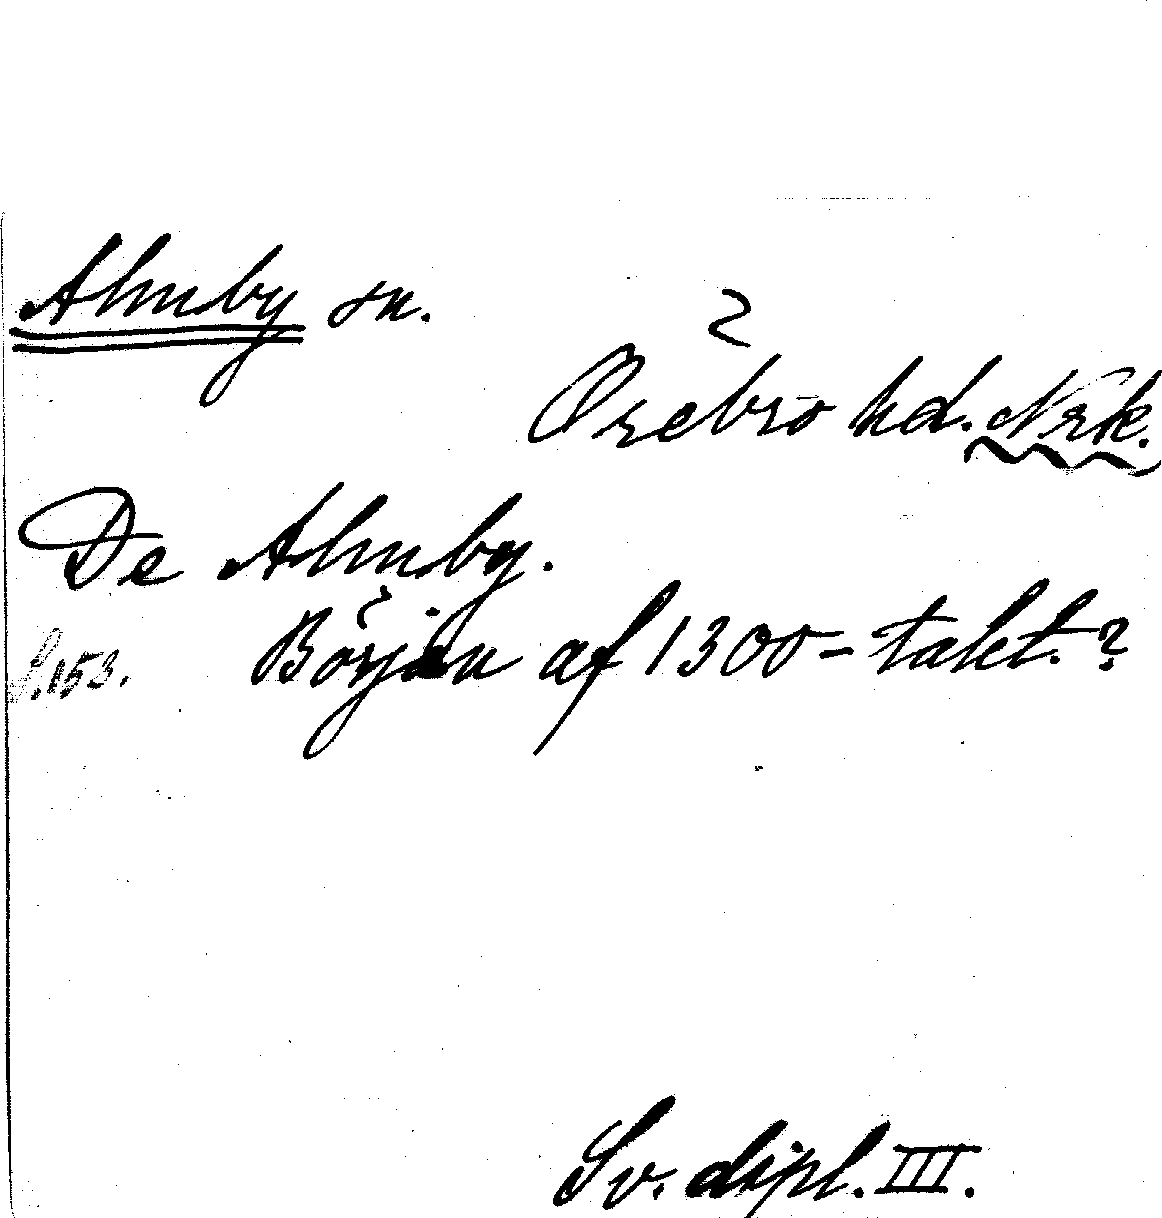 Almby sn.
Örebro hd. Nrk.
De Almby.
S. 153. Början af 1300-talet.?
Sv. dipl. III.